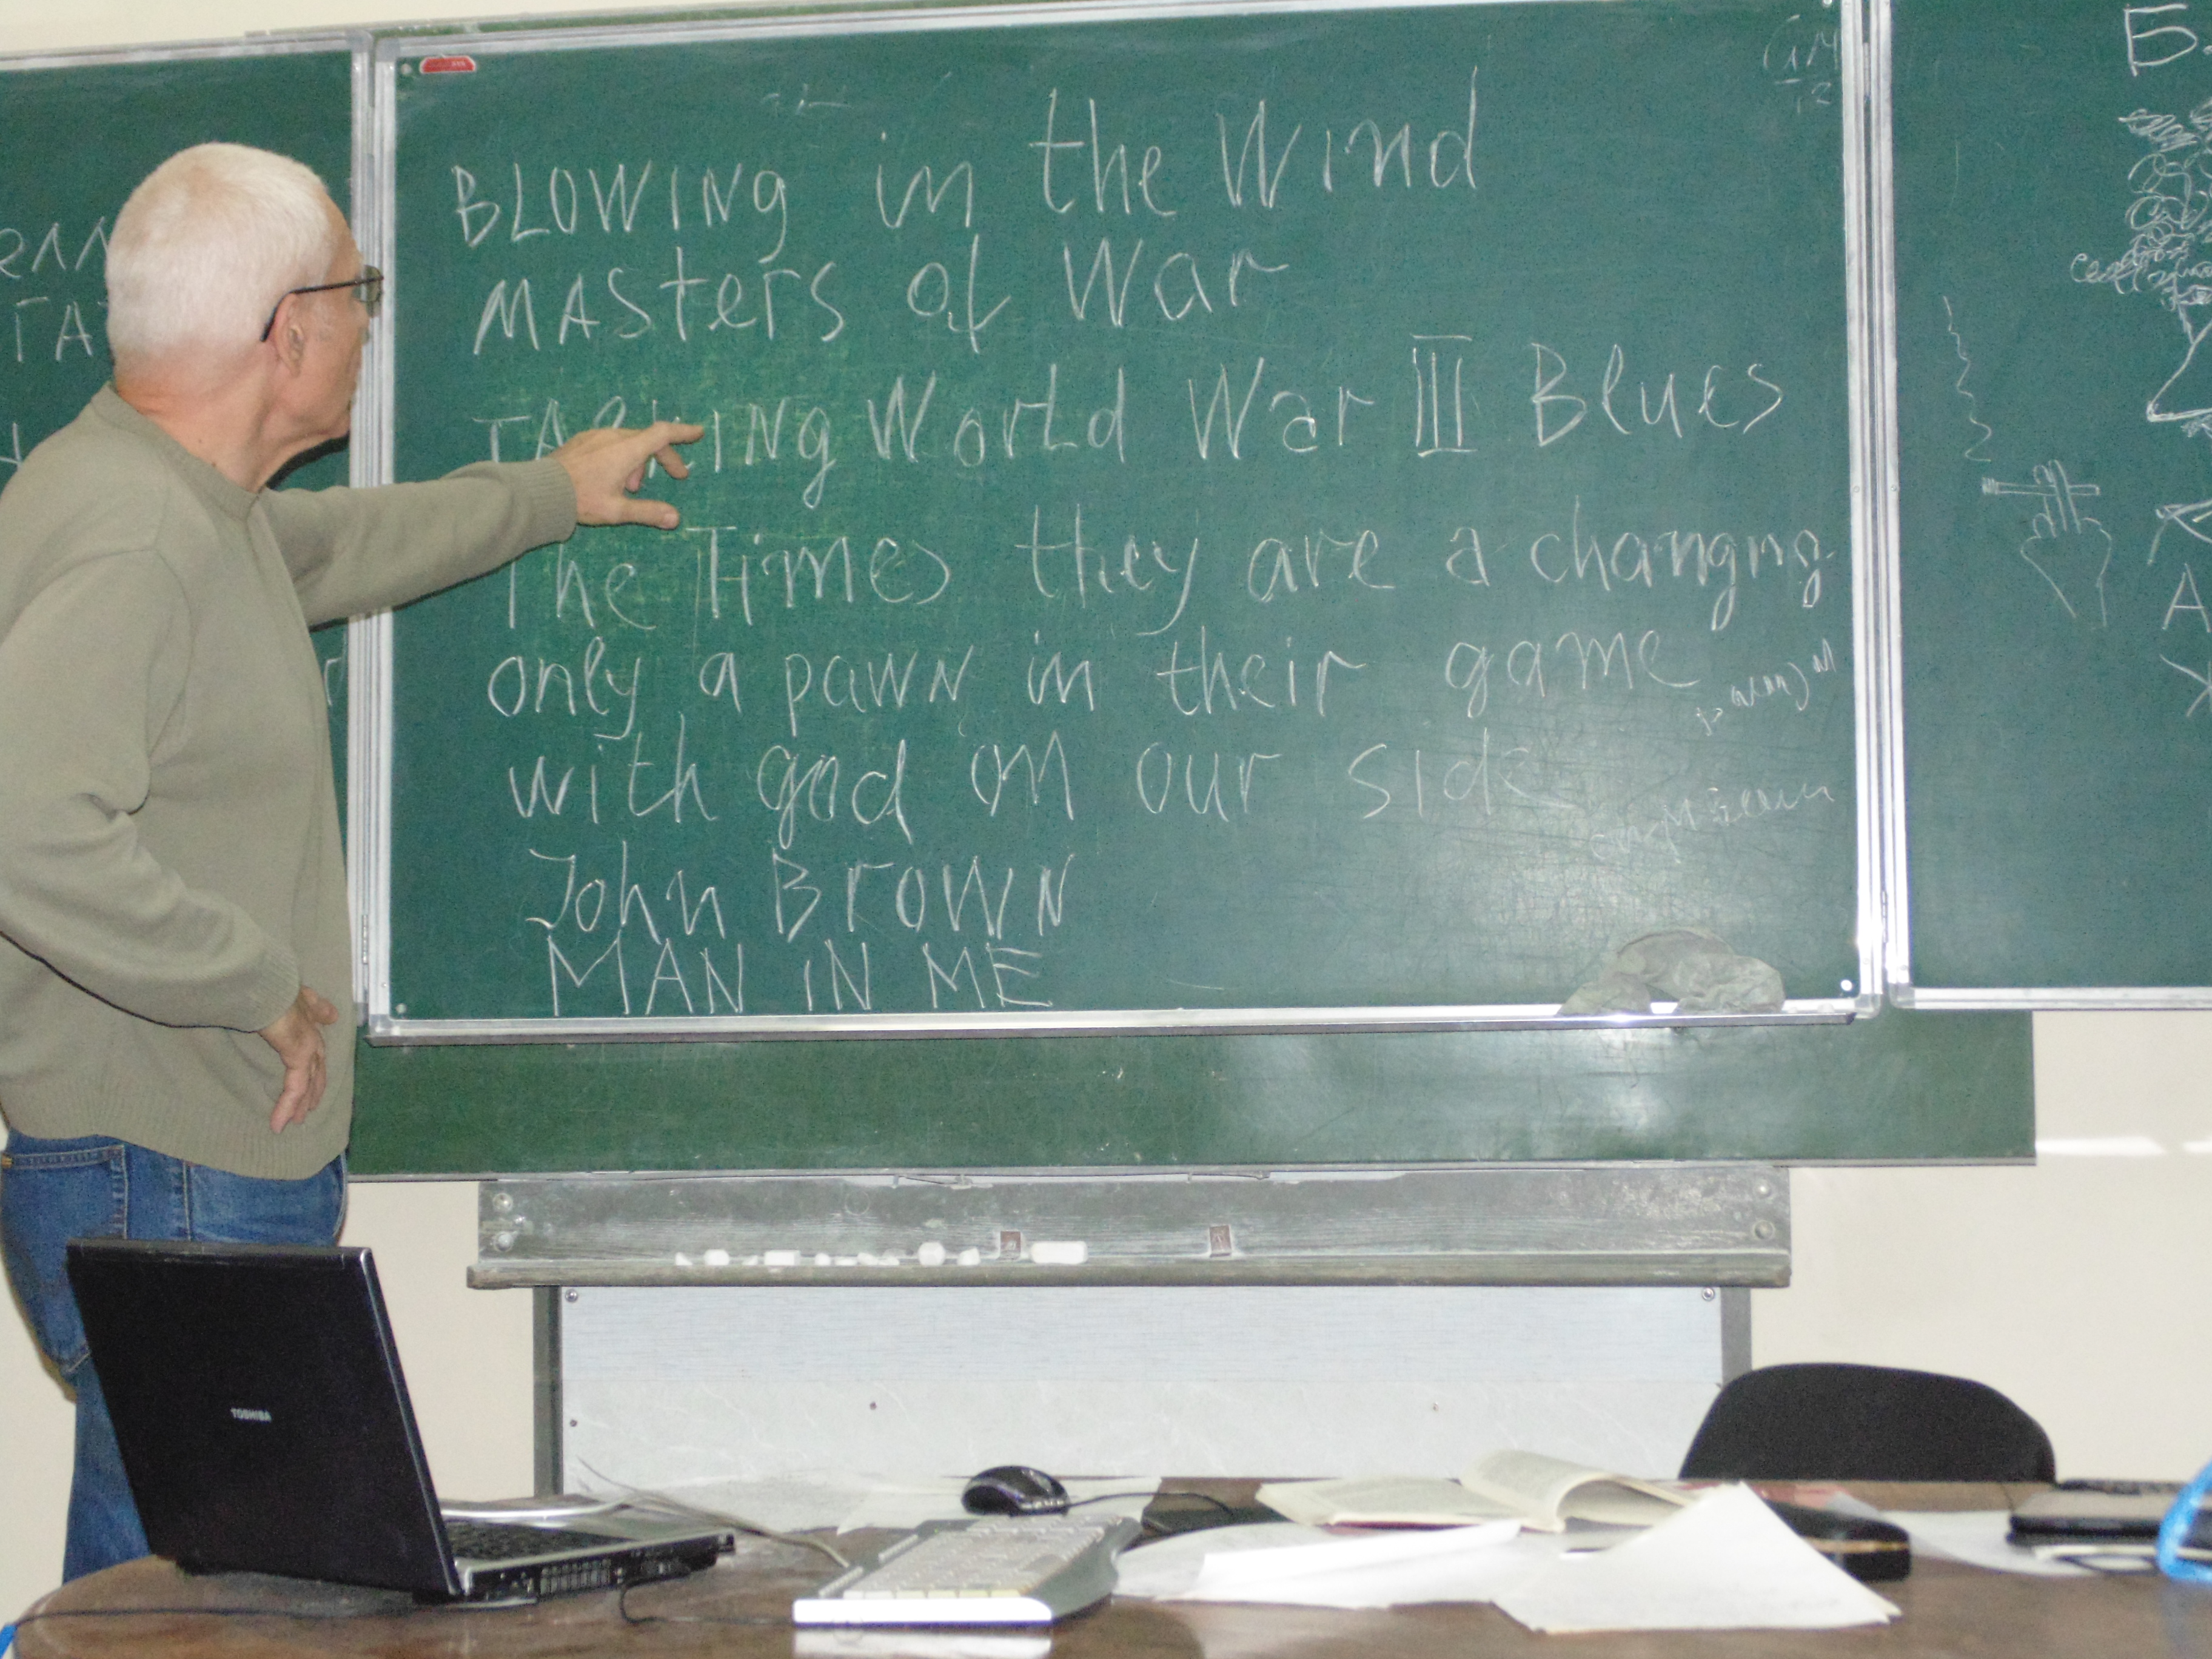 BLOWING in the Wind
MASters of War
TALKING World War III Blues
The Times they are a changing
only a pawn in their game
with god on our side
John Brown
MAN IN ME
TOSHIBA